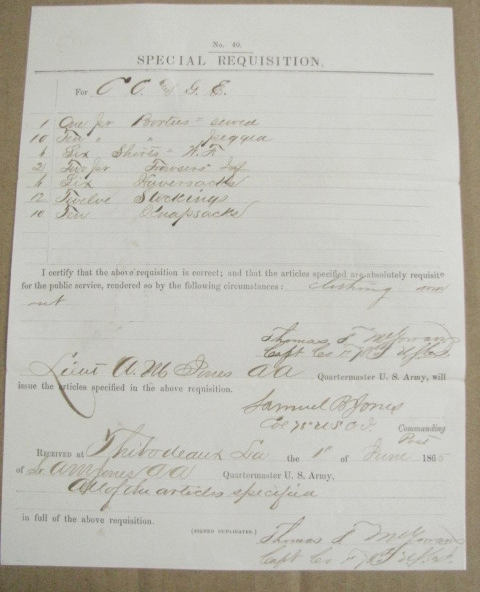 No. 40.
SPECIAL REQUISITION.
For C C and G. E.
1 One pr Booties sewed
10 Ten " " pegged
6 Six Shirts W. F.
2 Two pr Trowsers Inf
6 Six Haversacks
12 Twelve Stockings
10 Ten Knapsacks
I certify that the above requisition is correct; and that the articles specified are absolutely requisite
for the public service, rendered so by the following circumstances: clothing worn
out
Thomas McGowan
Capt Co
Lieut A. M. Jones A A Quartermaster U. S. Army, will
issue the articles specified in the above requisition.
Samuel B. Jones
Col 78 U S C I. Commanding
Post
RECEIVED AT Thibodeaux La the 1st of June 1865
of Lt. A M Jones A A Quartermaster U. S. Army,
All of the articles specified
in full of the above requisition.
(SIGNED DUPLICATES.)
Thomas McGowan
Capt Co